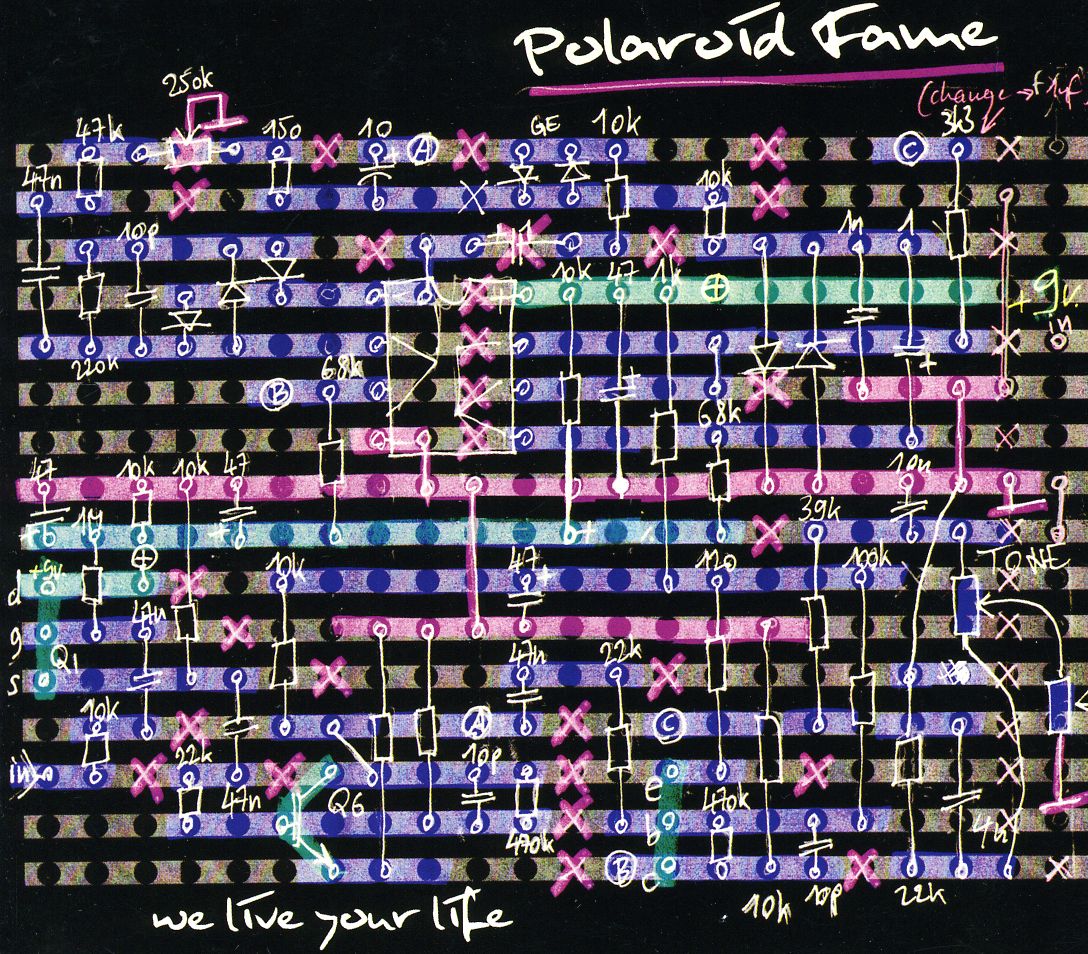 Polaroid Fame
250k
(change → 1µf
47k 150 10 A GE 10k C 3k3
47n 10k
10p 1 1n 1
10k 47 1k + + 9v.
in
220k 68k
B 68k
47 10k 10k 47 10n
+ 1M + + 39k
+9v. + 10k 47 + 120 100k TONE
d
g 47n
Q1 47n 22k
s
10k A C
in 22k 10p
47n Q6 e 470k
470k b 4n
B c
10k 10p 22k
we live your life